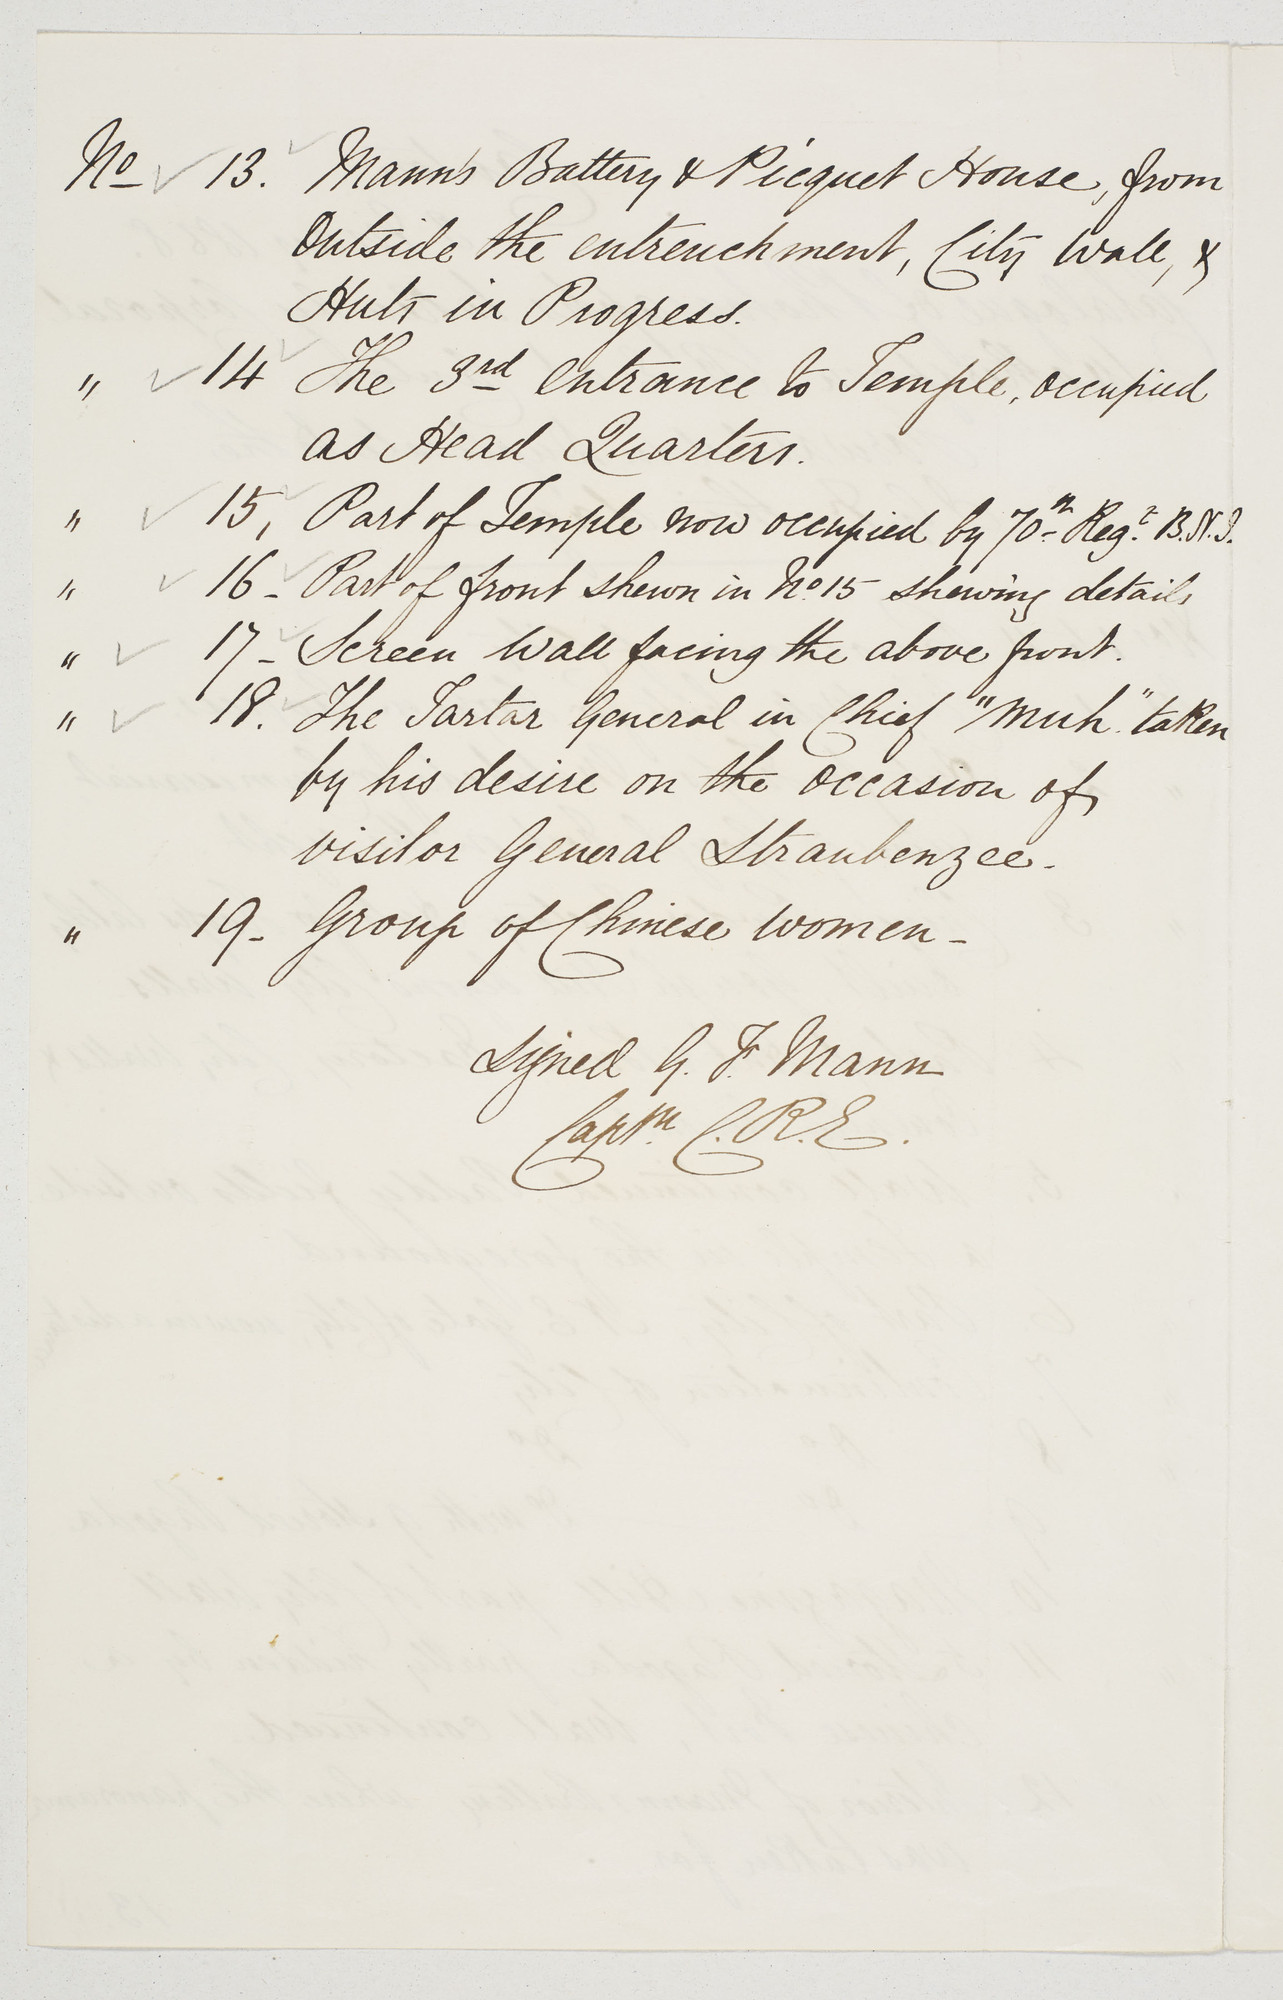 No 13. Mann's Battery & Picquet House, from
Outside the entrenchment, City Wall, &
Huts in Progress.
" 14 The 3rd entrance to Temple, occupied
as Head Quarters.
" 15, Part of Temple now occupied by 70th Regt. B.N.I.
" 16 - Part of front shewn in No. 15 shewing details
" 17 - Screen Wall facing the above front.
" 18. The Tartar General in Chief "Muh" taken
by his desire on the occasion of
visitor General Straubenzee.
" 19 - Group of Chinese Women -
Signed G. F. Mann
Captn. C.R.E.